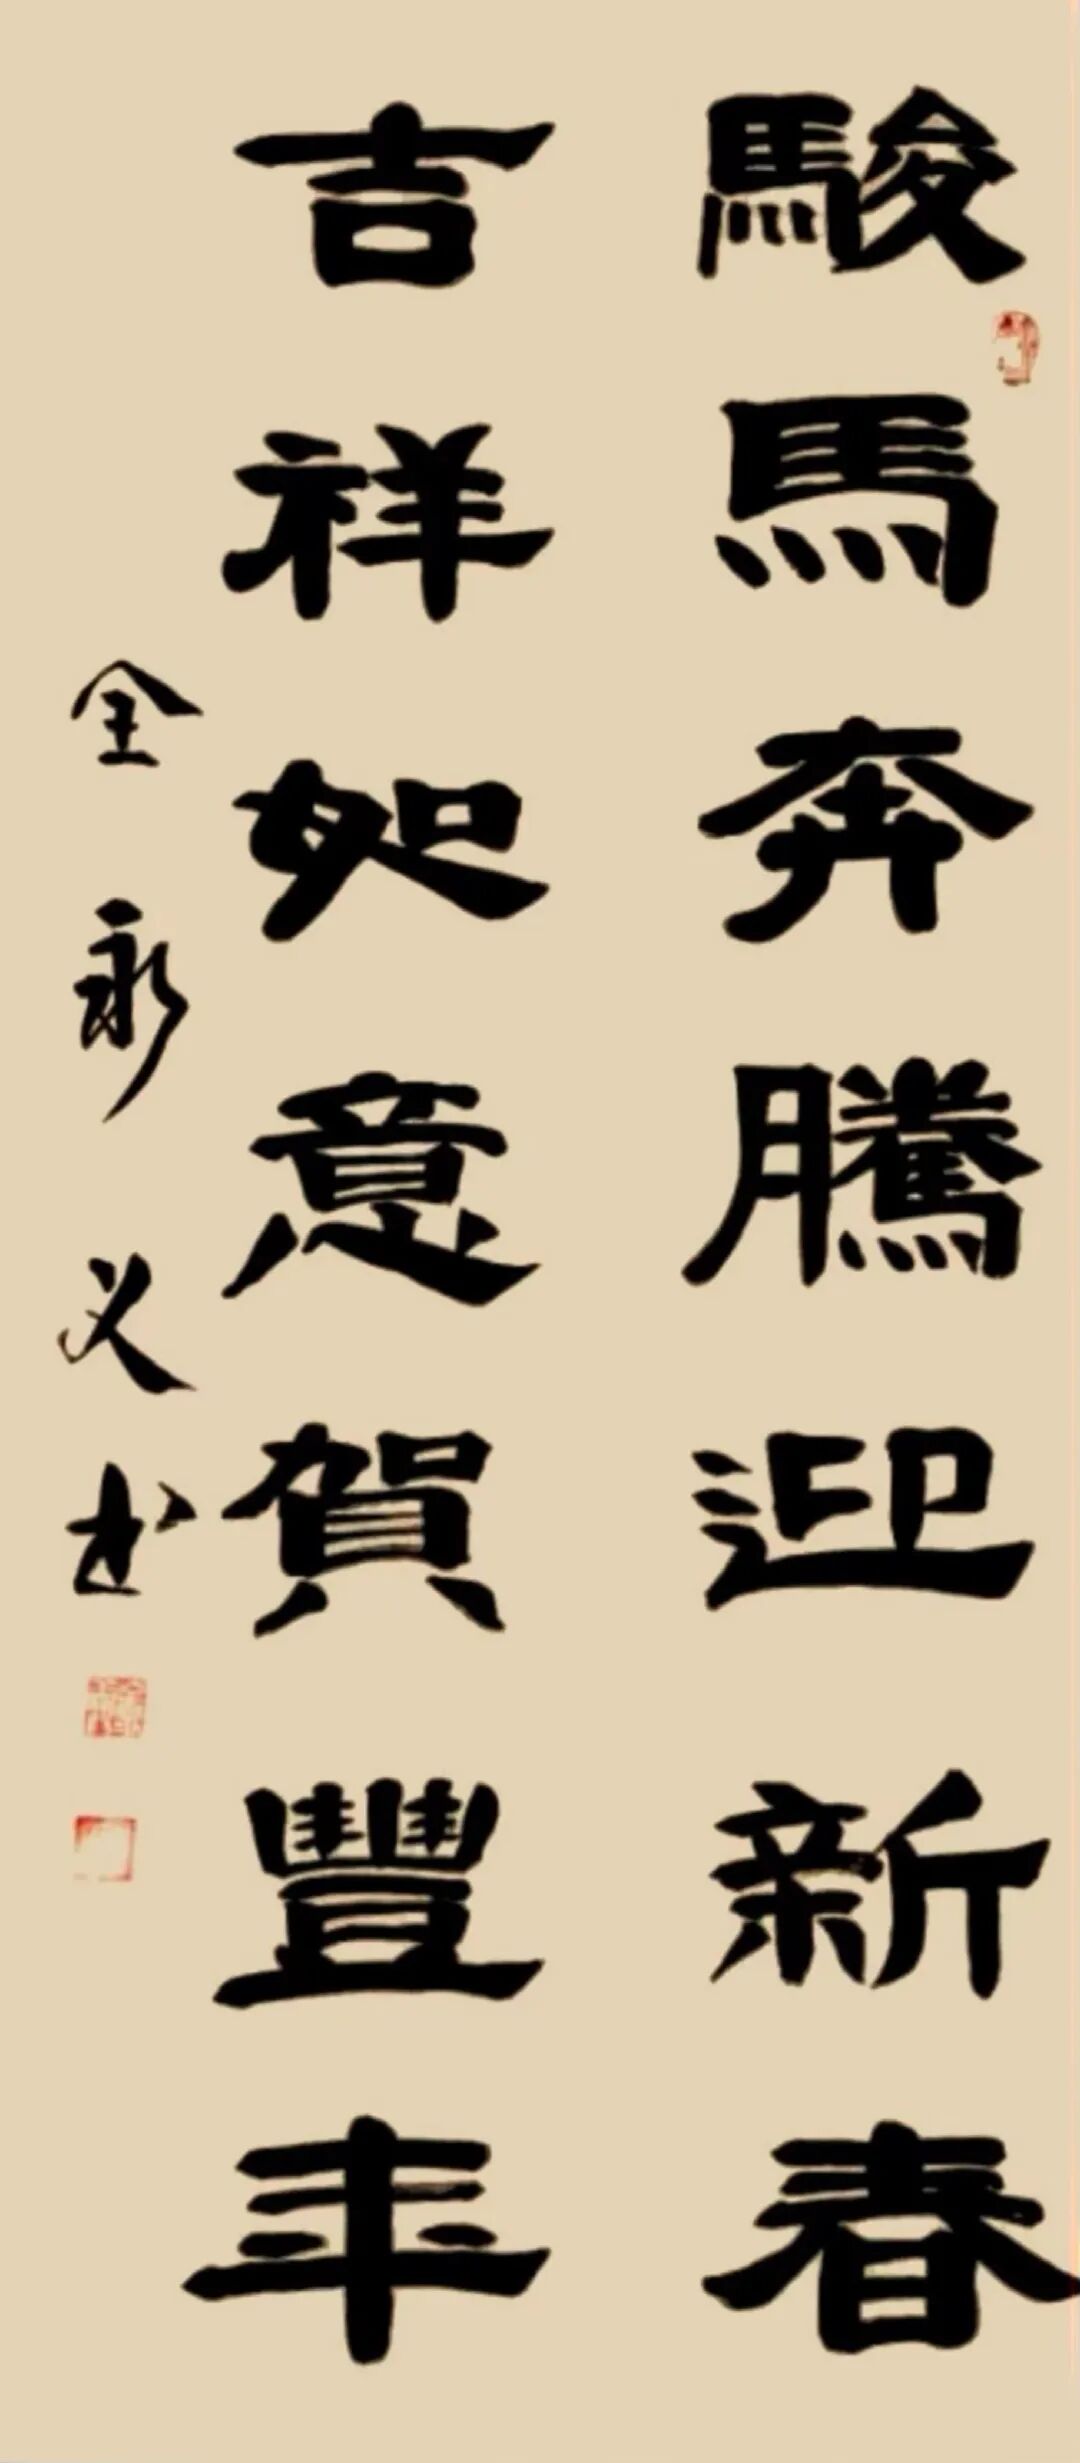 駿馬奔騰迎新春
吉祥如意賀豐年
全永义书